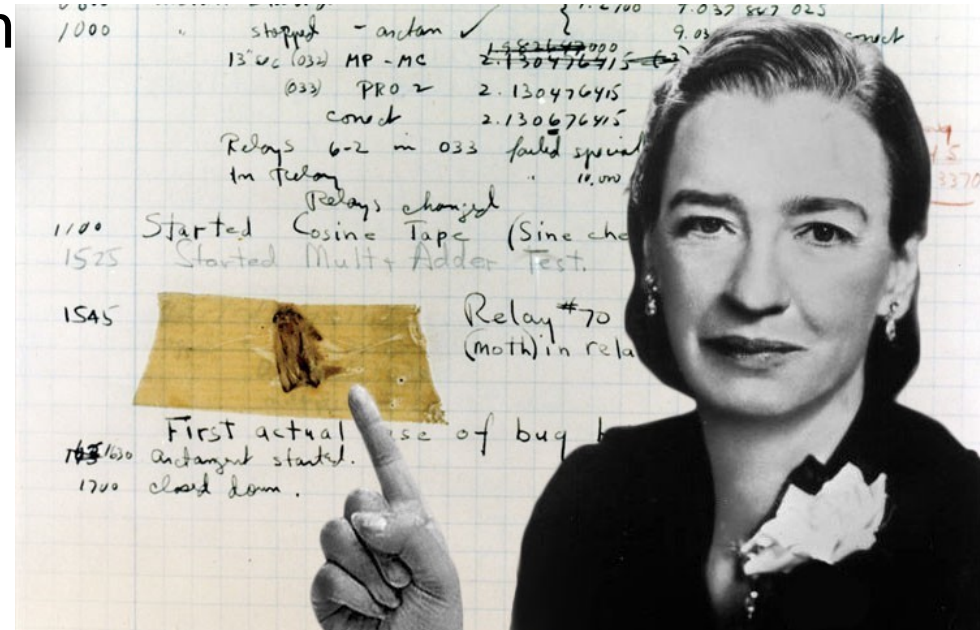 n
1000 " stopped - arctan ✓
13"uc (032) MP - MC 2.130476415
(033) PRO 2 2.130476415
correct 2.130676415
Relays 6-2 in 033 failed special
In Relay " 10,000
Relays changed
1100 Started Cosine Tape (Sine che
1525 Started Mult + Adder Test.
1545 Relay #70
(moth) in rela
First actual se of bug b
1630 arctangent started.
1700 closed down.